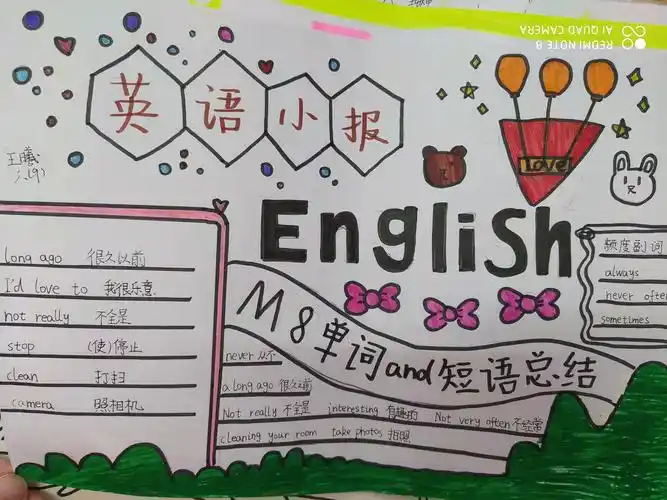 REDMI NOTE 8
AI QUAD CAMERA
英语小报
王曦
LOVE
English
long ago 很久以前
I'd love to 我很乐意
not really 不全是
stop (使)停止
clean 打扫
camera 照相机
频度副词
always
never often
sometimes
M8单词and短语总结
never 从不
a long ago 很久以前
Not really 不全是 interesting 有趣的 Not very often 不经常
cleaning your room take photos 拍照